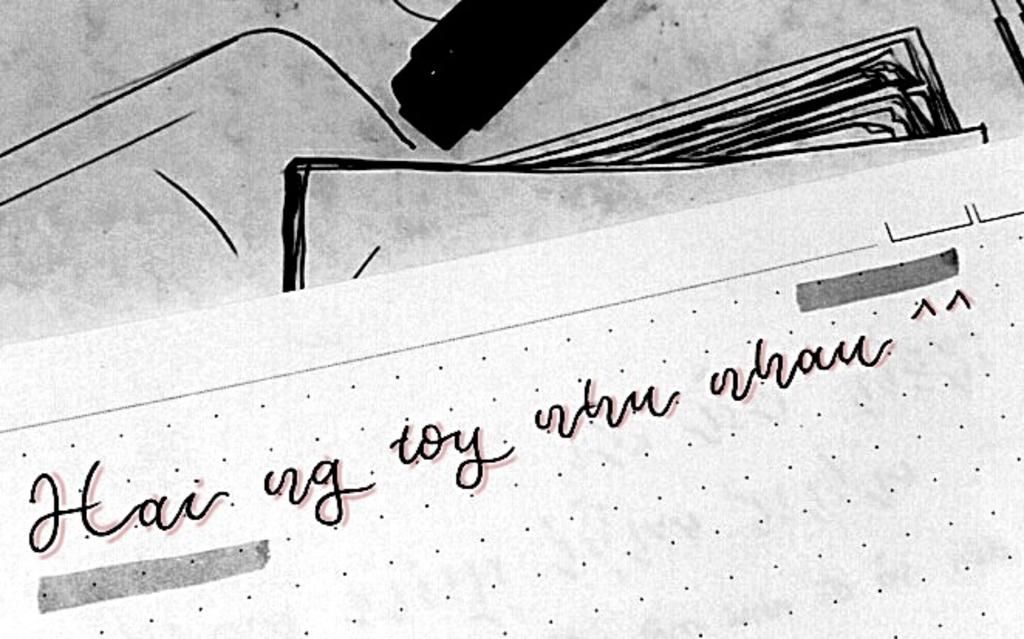 Hai ng toy nhu nhau ^^